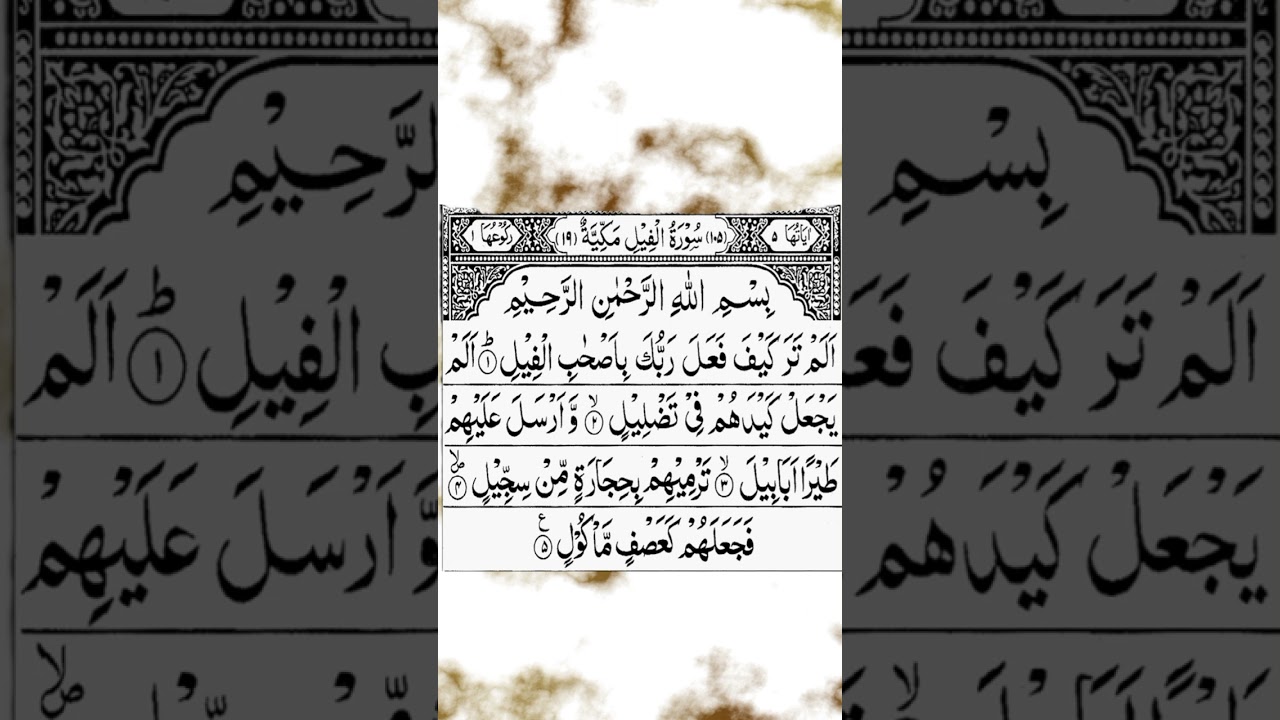 اٰیَاتُهَا ۵ (۱۰۵) سُوْرَةُ الْفِيْلِ مَكِّيَّةٌ (۱۹) رُكُوْعُهَا ۱
بِسْمِ اللّٰهِ الرَّحْمٰنِ الرَّحِيْمِ
اَلَمْ تَرَ كَيْفَ فَعَلَ رَبُّكَ بِاَصْحٰبِ الْفِيْلِ ؕ۱ اَلَمْ
يَجْعَلْ كَيْدَهُمْ فِيْ تَضْلِيْلٍ ۙ۲ وَّ اَرْسَلَ عَلَيْهِمْ
طَيْرًا اَبَابِيْلَ ۙ۳ تَرْمِيْهِمْ بِحِجَارَةٍ مِّنْ سِجِّيْلٍ ۪ۙ۴
فَجَعَلَهُمْ كَعَصْفٍ مَّاْكُوْلٍ ۵ ع